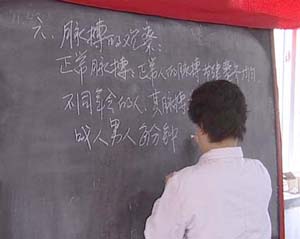 六、脉搏的观察:
正常脉搏:正常人的脉搏
不同年令的人,其脉搏
成人男人每分钟